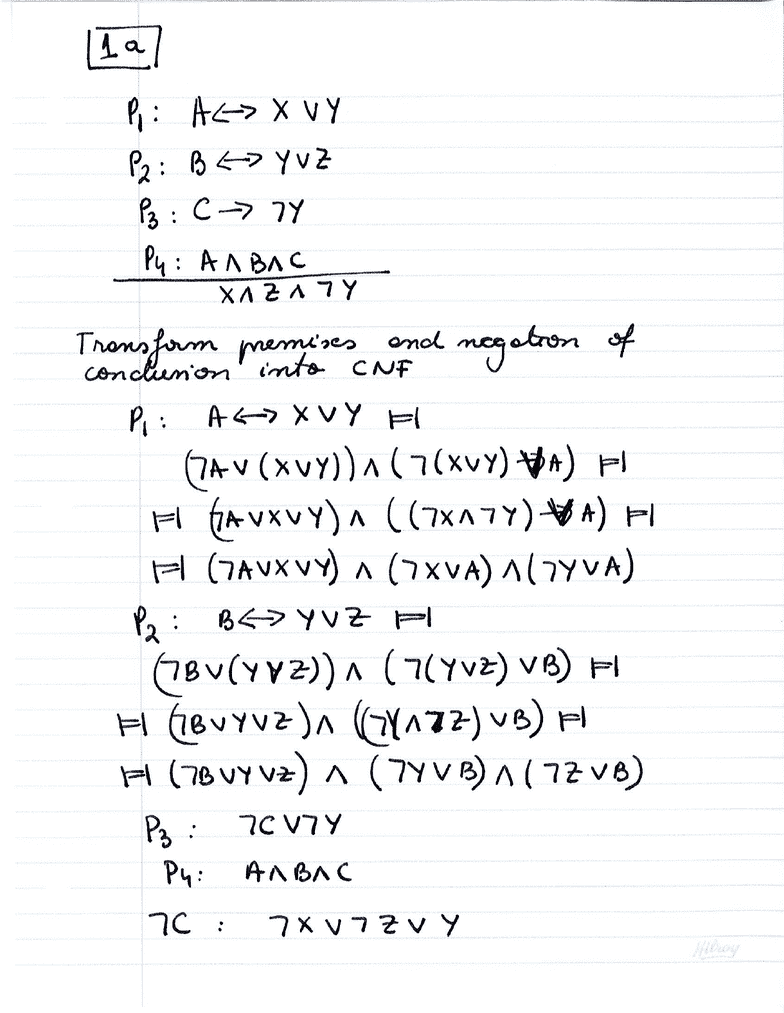 1a
P₁: A ↔ X ∨ Y
P₂: B ↔ Y ∨ Z
P₃: C → ¬Y
P₄: A ∧ B ∧ C
X ∧ Z ∧ ¬Y
Transform premises and negation of
conclusion into CNF
P₁: A ↔ X ∨ Y ⊨⫤
(¬A ∨ (X ∨ Y)) ∧ (¬(X ∨ Y) ∨ A) ⊨⫤
⊨⫤ (¬A ∨ X ∨ Y) ∧ ((¬X ∧ ¬Y) ∨ A) ⊨⫤
⊨⫤ (¬A ∨ X ∨ Y) ∧ (¬X ∨ A) ∧ (¬Y ∨ A)
P₂: B ↔ Y ∨ Z ⊨⫤
(¬B ∨ (Y ∨ Z)) ∧ (¬(Y ∨ Z) ∨ B) ⊨⫤
⊨⫤ (¬B ∨ Y ∨ Z) ∧ ((¬Y ∧ ¬Z) ∨ B) ⊨⫤
⊨⫤ (¬B ∨ Y ∨ Z) ∧ (¬Y ∨ B) ∧ (¬Z ∨ B)
P₃: ¬C ∨ ¬Y
P₄: A ∧ B ∧ C
¬C: ¬X ∨ ¬Z ∨ Y